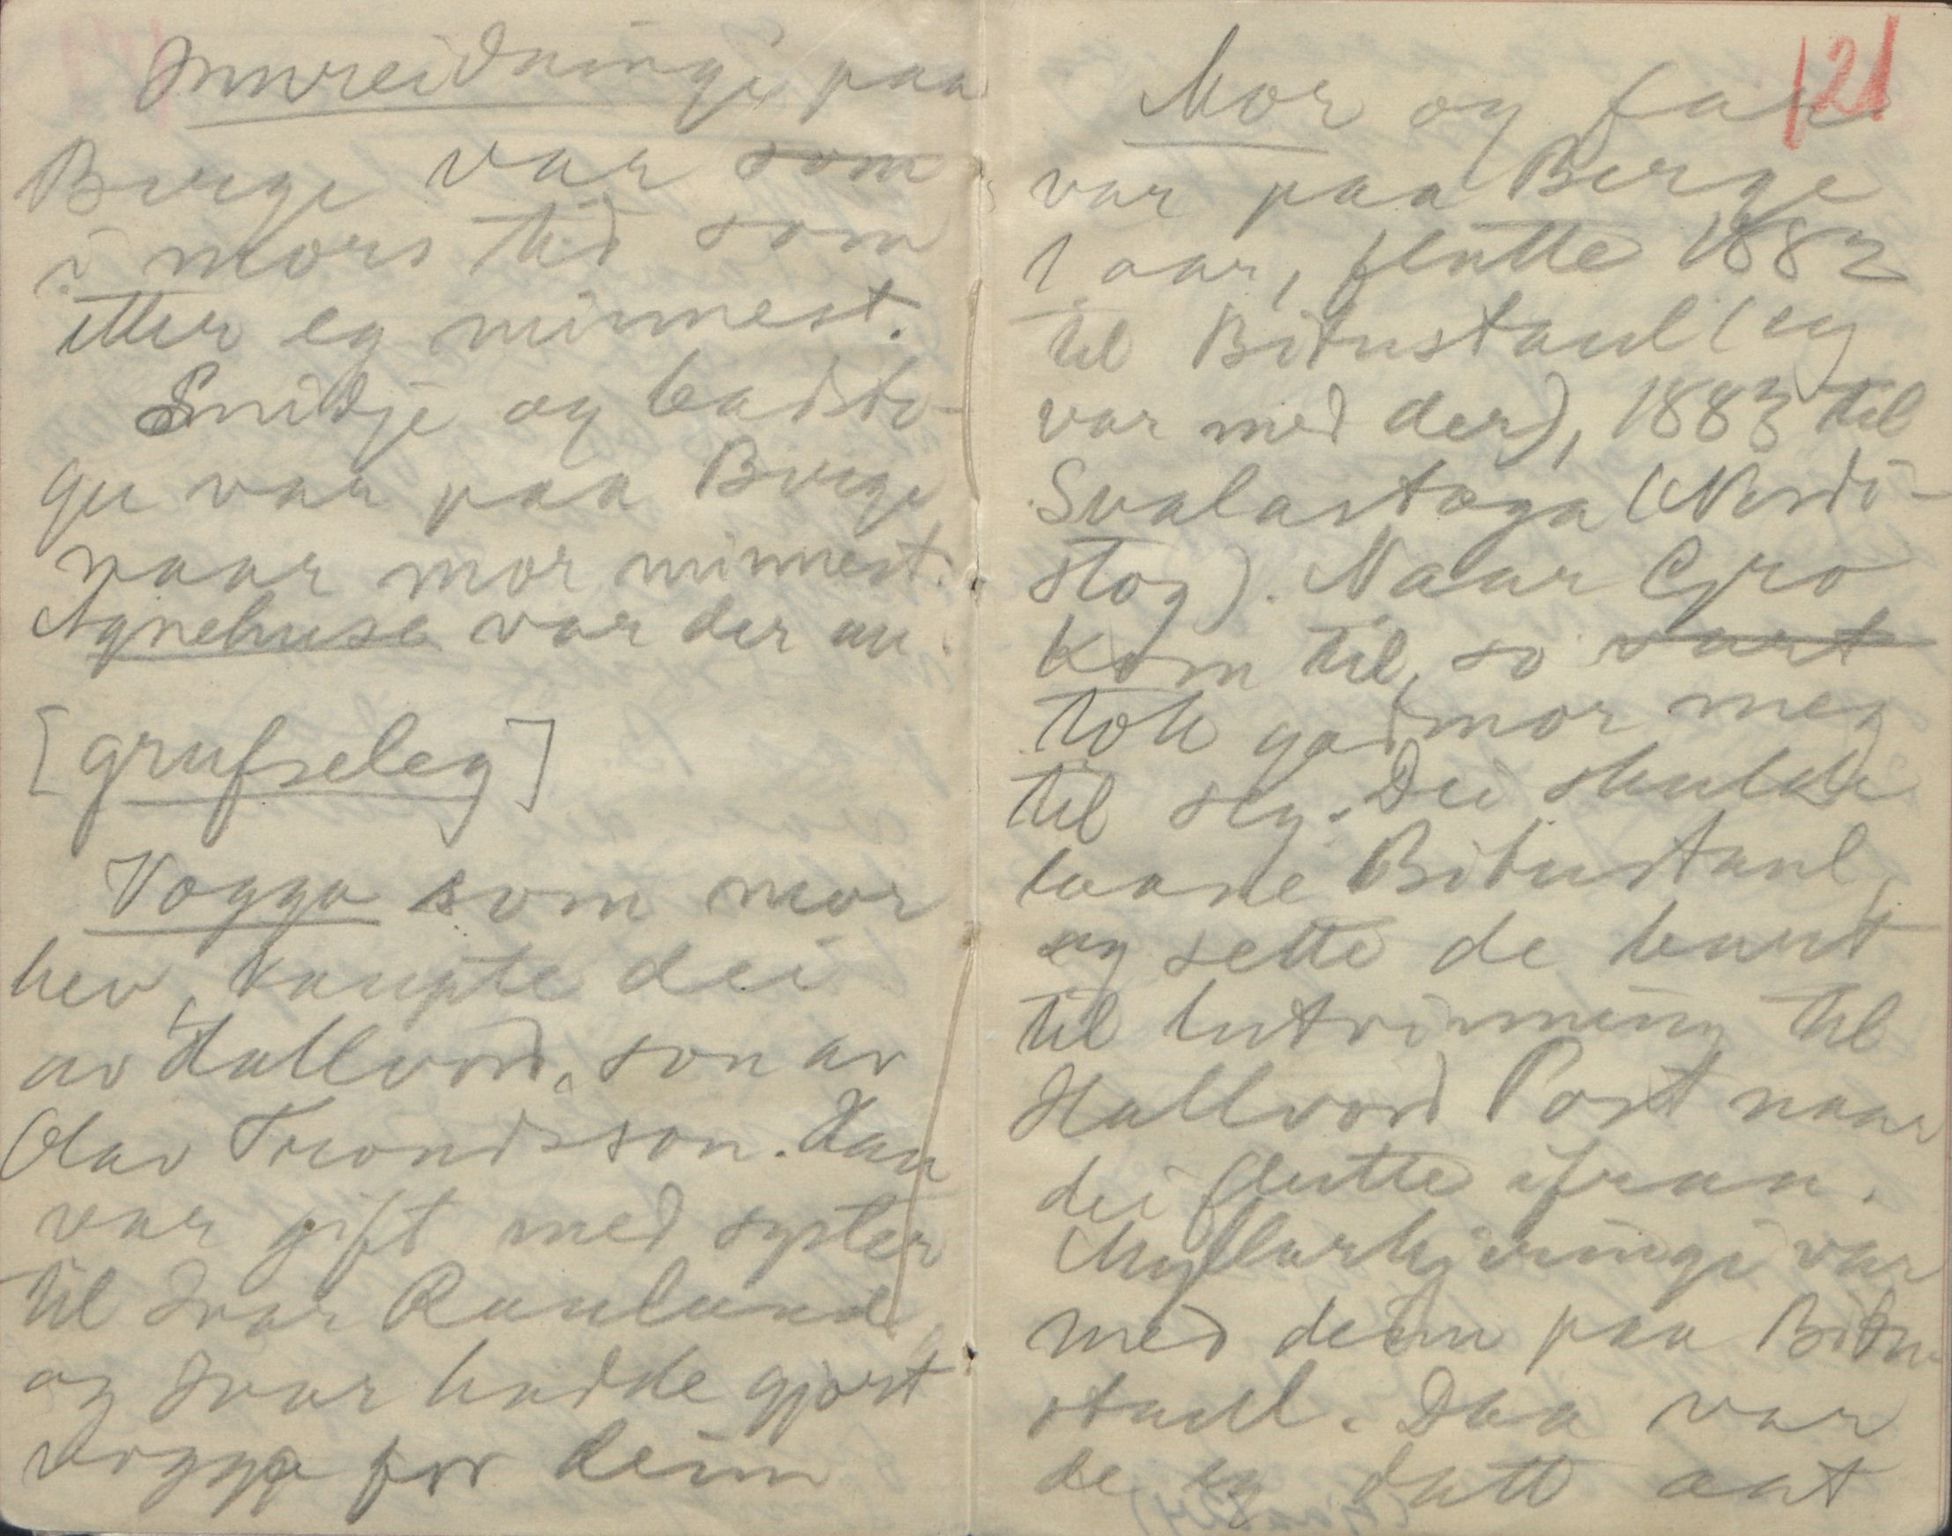 Innreidningi paa
Berge var som
i mors tid som
etter eg minnest.
Smidje og badsto-
gu var paa Berge,
naar mor minnest.
Agnehuse var der au.
[grufseleg]
Vogga som mor
hev, kaupte dei
av Hallvord, son av
Olav Trondsson. Han
var gift med syster
til Ivar Rauland,
og Ivar hadde gjort
vogga for deim
121
Mor og far
var paa Berge
1 aar, flutte 1882
til Bitustaul (eg
var med der), 1883 til
Svalastoga (Nordi-
stog). Naar Gro
kom til, so vart
tok godmor meg
til seg. Dei skulde
laane Bitustaul,
og sette de burt
til utvinning til
Hallvord Post naar
dei flutte ifraa.
Myllarkjeringi var
med deim paa Bitu-
staul. Daa var
de eg datt aat